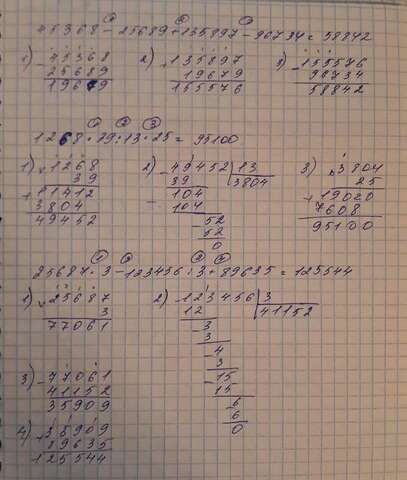 ① ② ③
45368 - 25689 + 135897 - 96734 = 58842
1) - 45368 2) + 135897 3) - 155576
25689 19679 96734
19679 155576 58842
① ② ③
1268 · 39 : 13 · 25 = 95100
1) × 1268 2) - 49452 | 13 3) × 3804
39 39 3804 25
+ 11412 - 104 + 19020
3804 104 7608
49452 - 52 95100
52
0
25687 · 3 - 123456 : 3 + 89635 = 125544
1) × 25687 2) - 123456 | 3
3 12 41152
77061 - 3
3
- 4
3
3) - 77061 - 15
41152 15
35909 - 6
6
4) + 35909 0
89635
125544